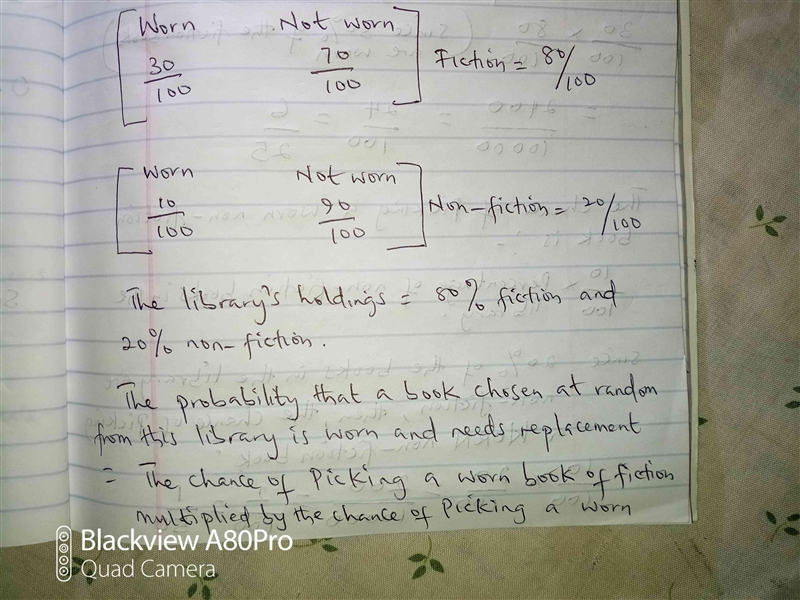 Worn Not worn
30/100 70/100 Fiction = 80/100
Worn Not worn
10/100 90/100 Non-fiction = 20/100
The library's holdings = 80% fiction and
20% non-fiction.
The probability that a book chosen at random
from this library is worn and needs replacement
= The chance of Picking a worn book of fiction
multiplied by the chance of Picking a worn
Blackview A80Pro
Quad Camera